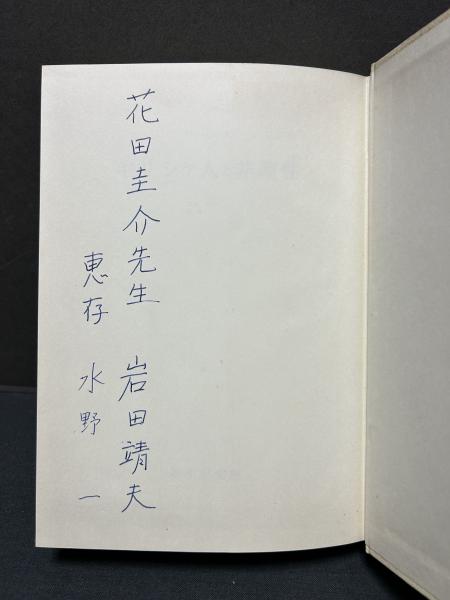 花田圭介先生 岩田靖夫
恵存 水野一